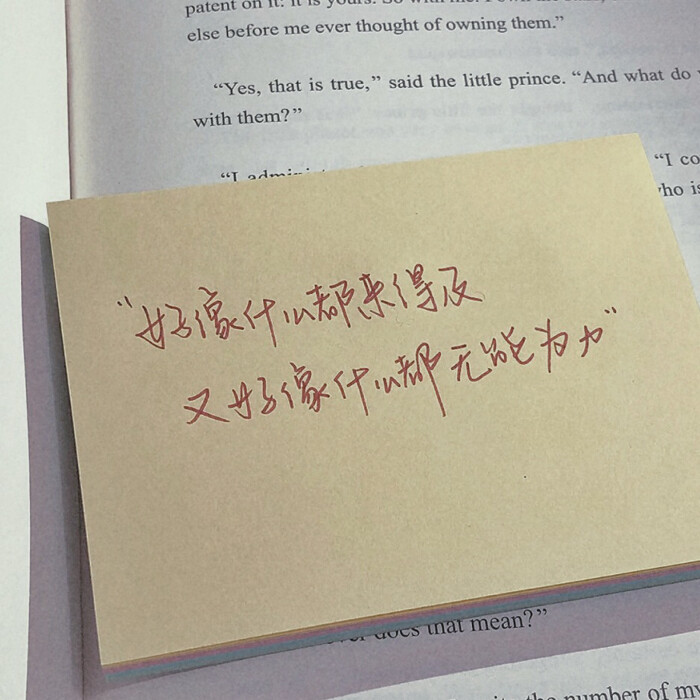 patent on it: it is yours. So with me:
else before me ever thought of owning them.”
“Yes, that is true,” said the little prince. “And what do
with them?”
“I
“I co
who is
“好像什么都来得及
又好像什么都无能为力”
does that mean?”
the number of my